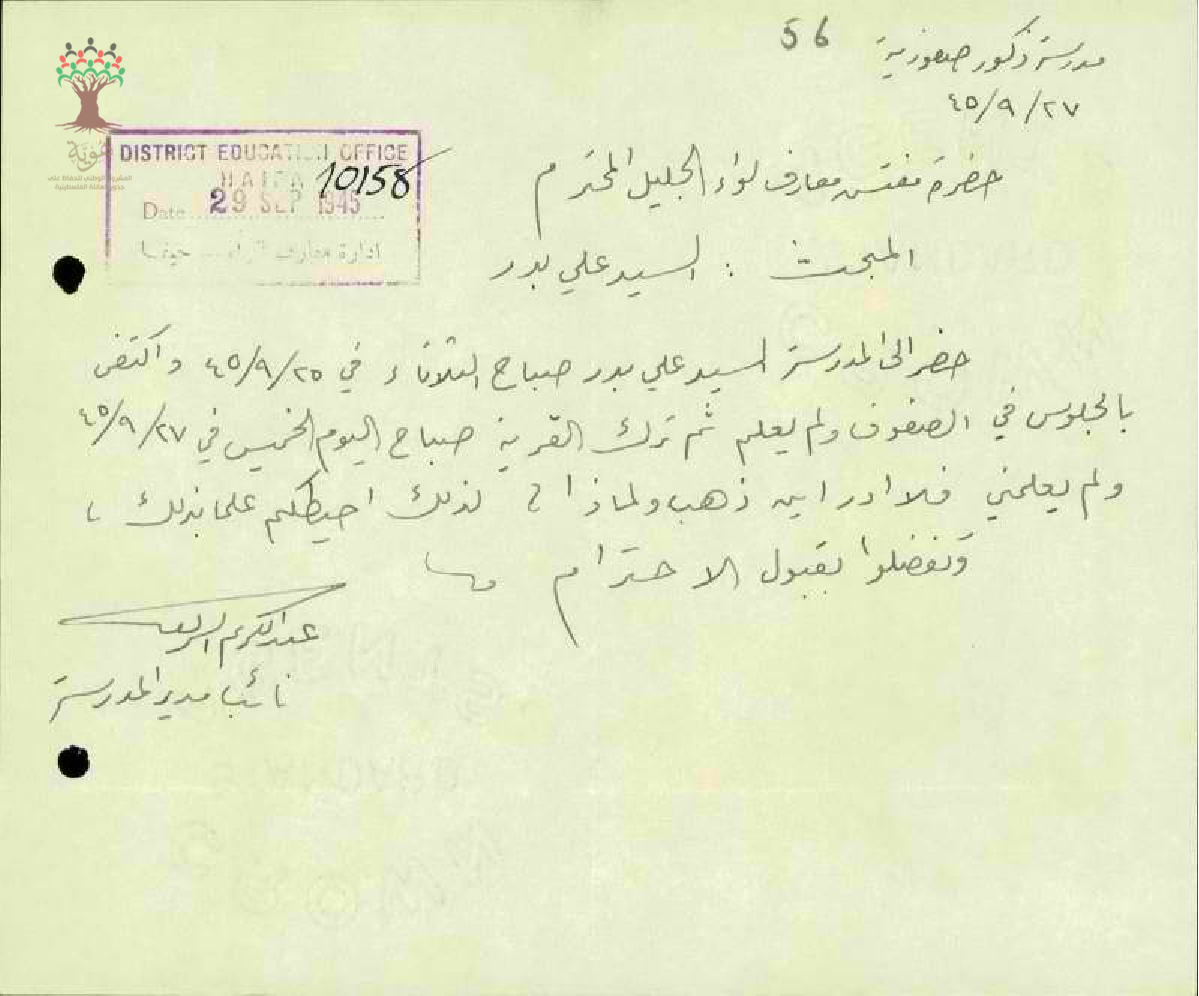 56
مدرسة ذكور صفورية
٤٥/٩/٢٧
هوية
المشروع الوطني للحفاظ على
جذور العائلة الفلسطينية
DISTRICT EDUCATION OFFICE
HAIFA
10158
Date 29 SEP 1945
ادارة معارف لواء حيفا
حضرة مفتش معارف لواء الجليل المحترم
المبحث : السيد علي بدر
حضر الى المدرسة السيد علي بدر صباح الثلاثاء في ٤٥/٩/٢٥ واكتفى
بالجلوس في الصفوف ولم يعلم ثم ترك القرية صباح اليوم الخميس في ٤٥/٩/٢٧
ولم يعلمني فلا ادر اين ذهب ولماذا ؟ لذلك احيطكم علما بذلك ،
وتفضلوا بقبول الاحترام
عبد الكريم
نائب مدير المدرسة